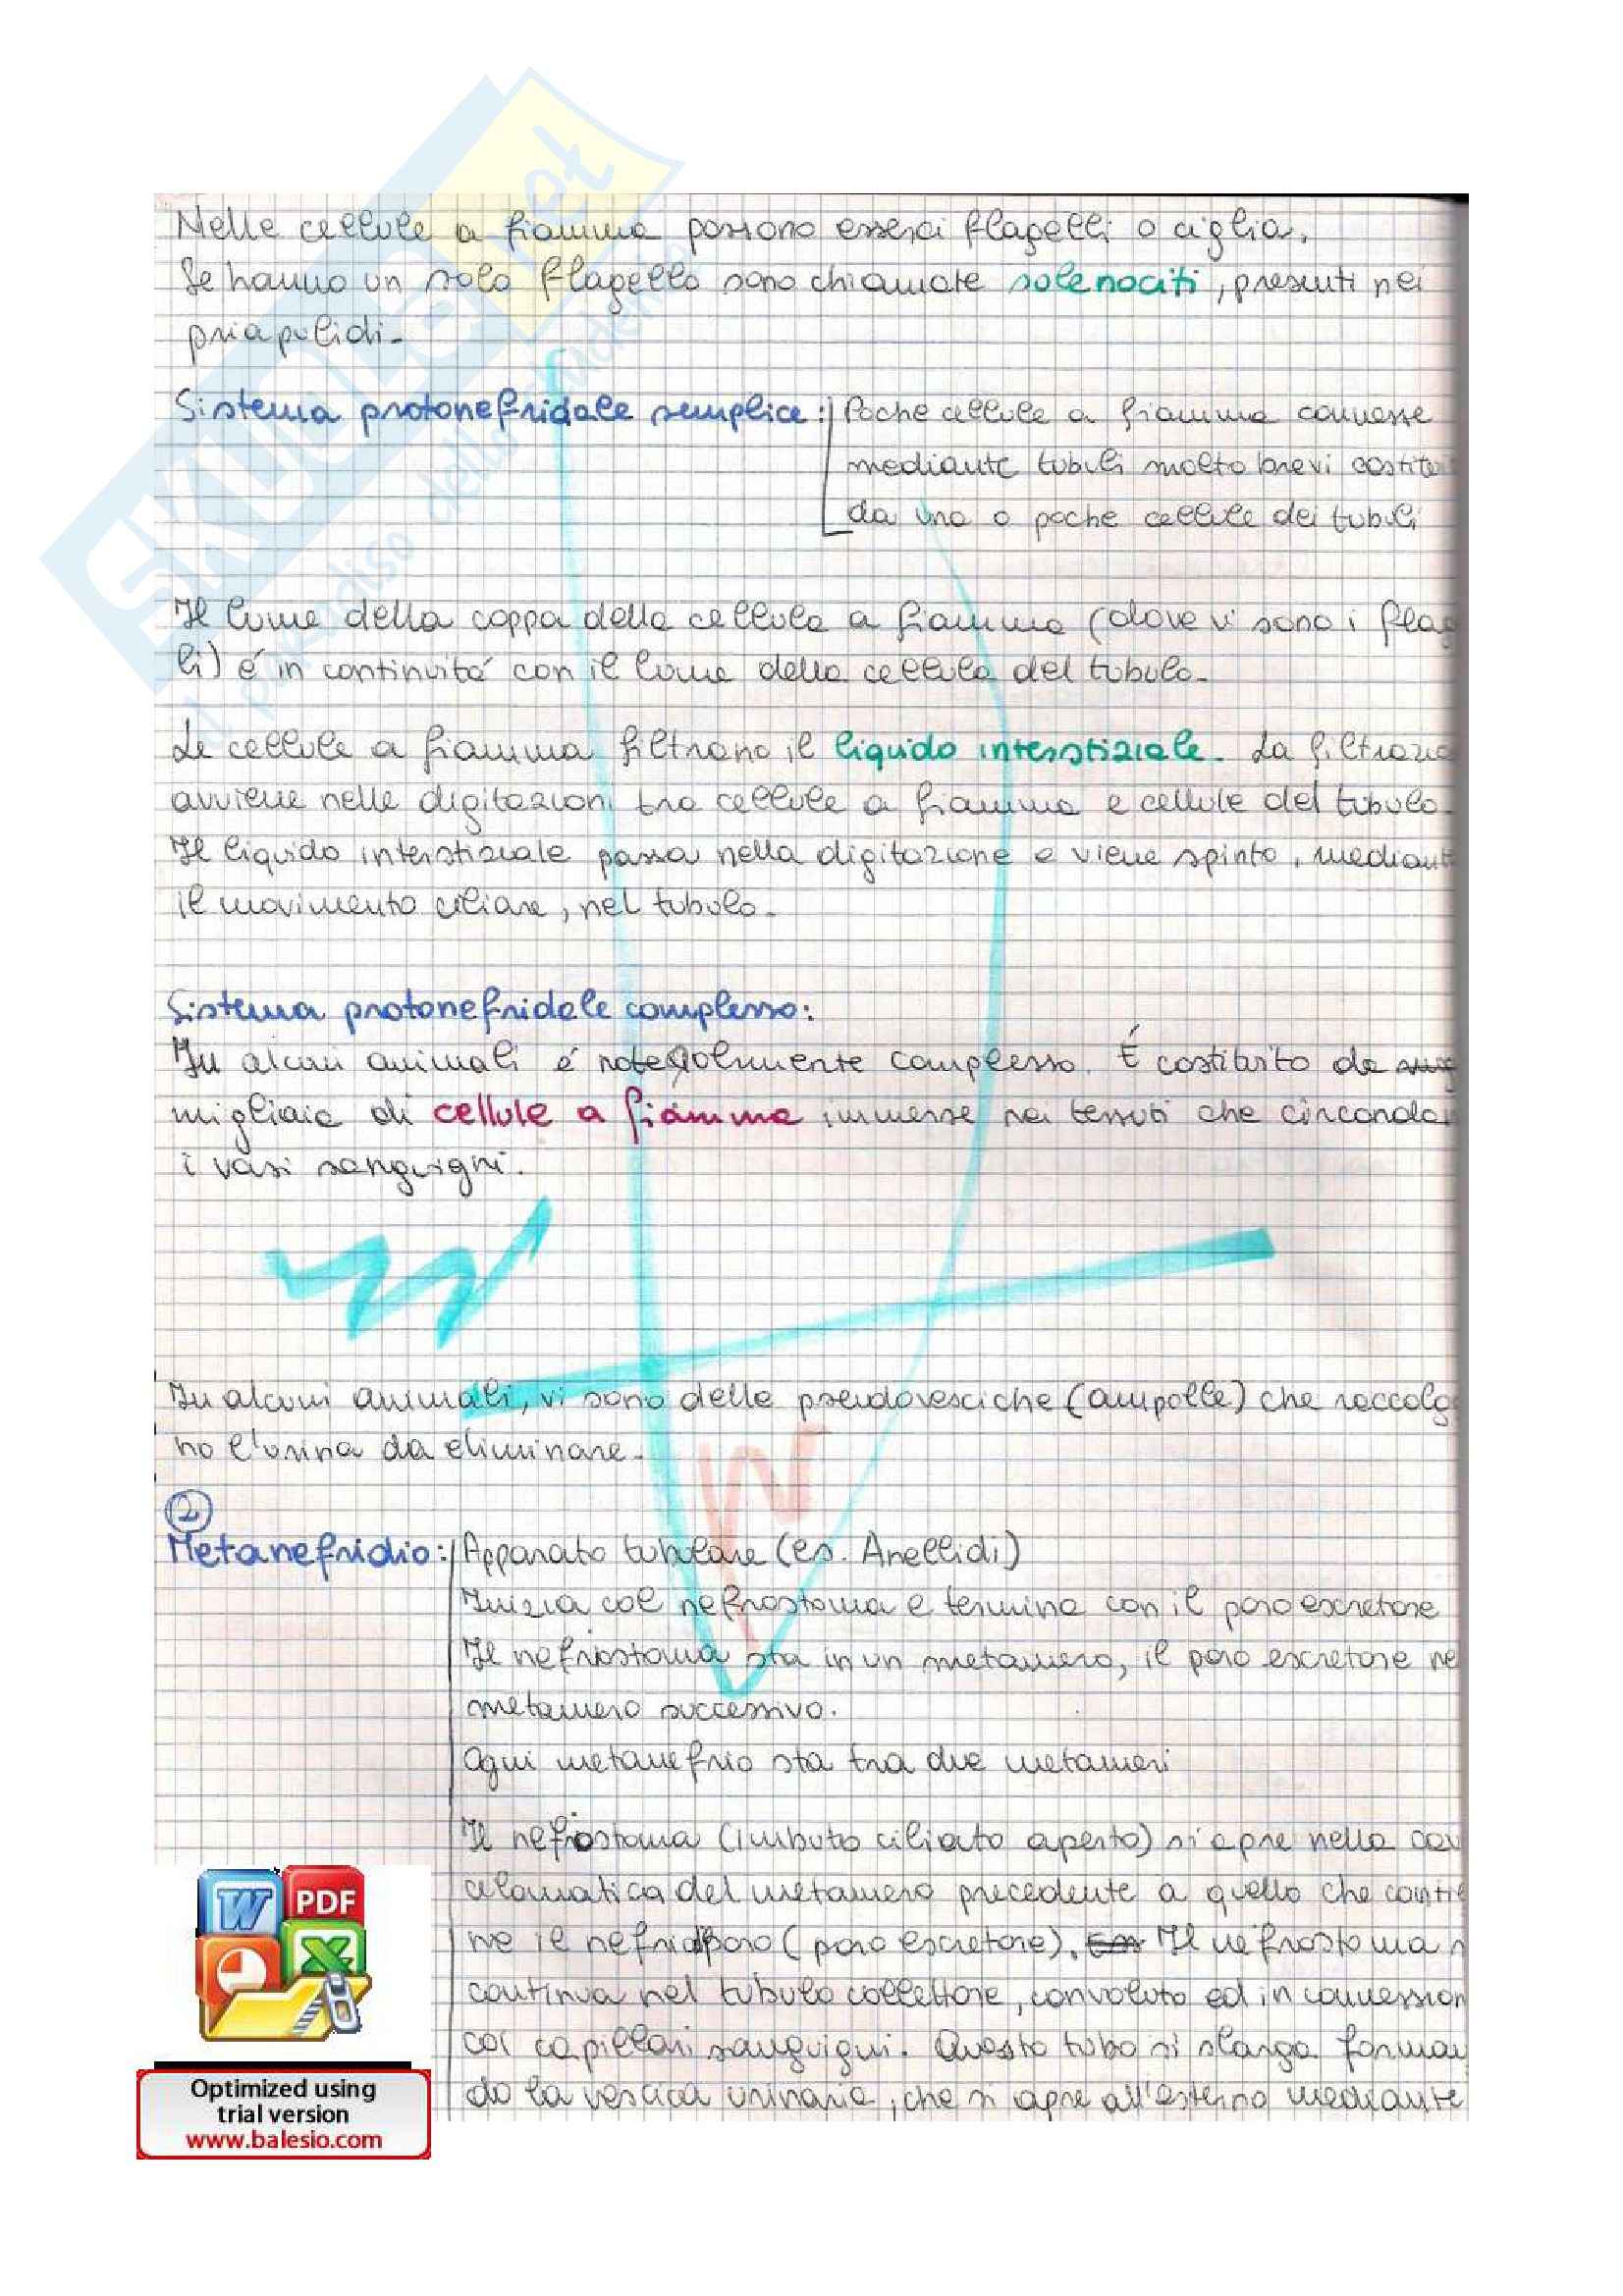 SKUOLA.net
il paradiso dello studente
Nelle cellule a fiamma possono esserci flagelli o ciglia.
Se hanno un solo flagello sono chiamate solenociti, presenti nei
priapulidi.
Sistema protonefridale semplice: Poche cellule a fiamma connesse
mediante tubuli molto brevi costitui
da una o poche cellule dei tubuli
Il lume della coppa della cellula a fiamma (dove vi sono i flag
li) é in continuitá con il lume della cellula del tubulo.
Le cellule a fiamma filtrano il liquido interstiziale. La filtrazio
avviene nelle digitazioni tra cellule a fiamma e cellule del tubulo.
Il liquido interstiziale passa nella digitazione e viene spinto, mediant
il movimento ciliare, nel tubulo.
Sistema protonefridale complesso:
In alcuni animali é notevolmente complesso. É costituito da
migliaia di cellule a fiamma immerse nei tessuti che circonda
i vasi sanguigni.
In alcuni animali, vi sono delle pseudovesciche (ampolle) che raccolg
no l'urina da eliminare.
2
Metanefridio: Apparato tubulare (es. Anellidi)
Inizia col nefrostoma e termina con il poro escretore
Il nefrostoma sta in un metamero, il poro escretore ne
metamero successivo.
Ogni metanefrio sta tra due metameri
Il nefrostoma (imbuto ciliato aperto) si apre nella cav
celomatica del metamero precedente a quello che contie
ne il nefridioporo (poro escretore). Il nefrostoma s
continua nel tubulo collettore, convoluto ed in connession
coi capillari sanguigni. Questo tubo si slarga forman
do la vescica urinaria, che si apre all'esterno mediante
W PDF
X
Optimized using
trial version
www.balesio.com